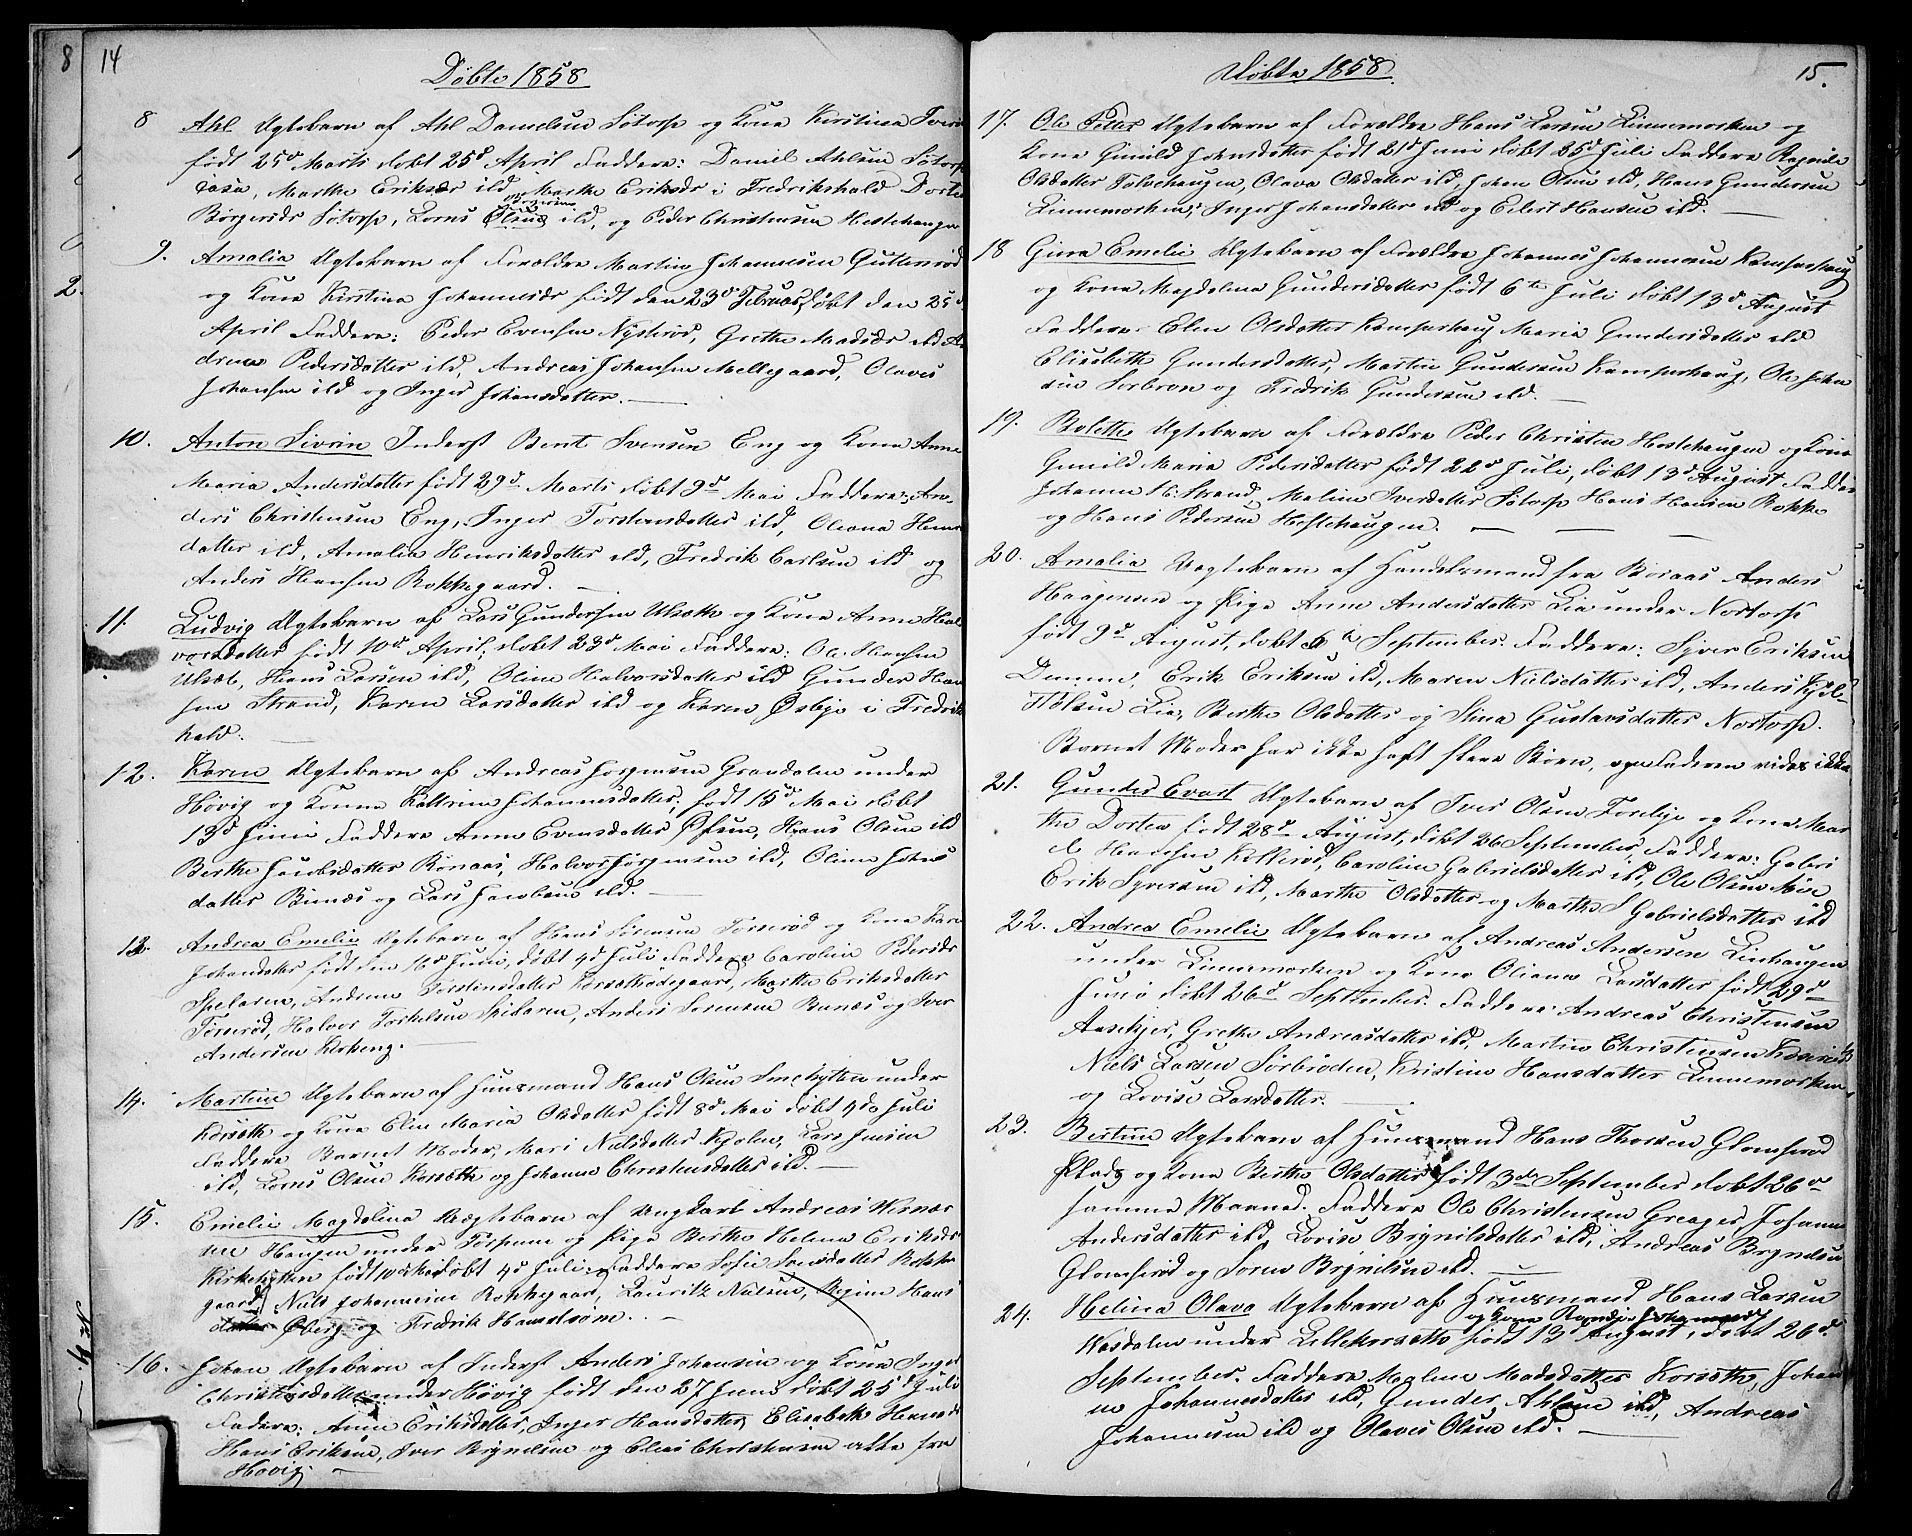 8
2.
14
Döbte 1858
8 Ahl Ægtebarn af Ahl Danielsen Sötorp og Kone Kirstina Ivers
født 25d Marts døbt 25d April Faddere: Daniel Ahlsen Sötorp
Marthe Eriksdr ibd, Marthe Eriksdr i Fredrikshald Dorte
Börgersdr Sötorp, Lorns Olsen ibd, og Peder Christensen Hestehaugen
9. Amalia Ægtebarn af Forældre Martin Johannesen Guttersröd
og Kone Kirstina Johannesdr født den 23d Februar, døbt den 25d
April Faddere: Peder Evensen Nyströd, Grethe Madsdr ibd An
drine Pedersdatter ibd, Andreas Johansen Mellegaard, Olaves
Johansen ibd og Inger Johansdatter.
10. Anton Sivrin Inderst Bent Svensen Eng og Kone Anne
Maria Andersdatter født 29d Marts døbt 9d Mai Faddere: An-
ders Christensen Eng, Inger Torstensdatter ibd, Oleana Hans
datter ibd, Amalia Henriksdatter ibd, Fredrik Carlsen ibd og
Anders Hansen Rokkegaard.
11. Ludvig Ægtebarn af Lars Gundersen Ulsæth og Kone Anne Hal
vorsdatter født 10d April, døbt 23d Mai Faddere: Ole Hansen
Ulsæt, Hans Larsen ibd, Oline Halvorsdatter ibd Gunder Han
sen Strand, Karen Larsdatter ibd og Karen Østbye i Fredriks
hald.
12. Karen Ægtebarn af Andreas Jørgensen Grævdalen under
Høvig og Konne Kattrine Johannesdatter, født 15d Mai døbt
13d Juni Faddere Anne Evensdatter Hans Olsen ibd
Berthe Jacobsdatter Rönaas, Halvor Jørgensen ibd, Oline Johns
datter Bunæs og Lars Jacobsen ibd.
13. Andrea Emelie Ægtebarn af Hans Sörensen Torseröd og Kone Karen
Johansdatter født den 16d Juni, døbt 4d Juli Faddere Caroline Pedersdr
Spelaren, Andrine Torstensdatter Korsethödegaard, Marthe Eriksdatter
Torseröd, Halvor Torkelsen Spilaren, Anders Sorensen Bunæs og Iver
Andersen Kirkeng.
14. Martine Ægtebarn af Huusmand Hans Olsen Smehytten under
Korseth og Kone Elen Maria Olsdatter født 8d Mai døbt 4de Juli
Faddere Barnet Moder, Mari Nielsdatter Kjölen, Lars Jensen
ibd, Lorns Olsen Korseth og Johanne Christensdatter ibd.
15. Emelie Magdelina Uægtebarn af Ungkarl Andreas Hernæs
sen Haugen under Torpum og Pige Berthe Helene Eriksdr
Kirkehytten født 10d Mai døbt 4d Juli Faddere Sofie Svensdatter Rokke
gaard, Niels Johannesen Rokkegaard, Lauritz Nilsen, Regine Hans
datter Øberg og Fredrik Hansen ibd.
16. Johan Ægtebarn af Inderst Anders Johansen og Kone Inger
Christensdatter under Høvig født den 27 Juni døbt 25d Juli
Faddere: Anne Eriksdatter, Inger Hansdatter, Elisabeth Hansdr
Hans Eriksen, Iver Brynelsen og Elias Christensen alle fra
Høvig.
Döbte 1858.
15.
17. Ole Petter Ægtebarn af Forældre Hans Larsen Linnemorken og
Kone Gunild Johnsdatter født 21d Juni døbt 25d Juli Faddere Ragnile
Olsdatter Tolsehaugen, Olava Olsdatter ibd, Johan Olsen ibd, Hans Gundersen
Linnemorken, Inger Johansdatter ibd og Eilert Hansen ibd.
18 Gina Emelie Ægtebarn af Forældre Johannes Johannesen Kamperhaug
og Kone Magdelena Gundersdatter født 6te Juli døbt 13d August
Faddere: Elen Olsdatter Kamperhaug Maria Gundersdatter ibd
Elisabeth Gundersdatter, Martin Gundersen Kamperhaug, Ole Johan
sen Sorbroen og Fredrik Gundersen ibd.
19. Bolette Ægtebarn af Forældre Peder Christen Hestehaugen og Kone
Gunild Maria Pedersdatter født 22d Juli, døbt 13d August Faddere
Johanne N: Strand, Maline Iversdatter Sötorp Hans Hansen Rokke
og Hans Pedersen Hestehaugen.
20. Amalia Uægtebarn af Handelsmand fra Boraas Anders
Haagensen og Pige Anne Andersdatter Lie under Nortorp
født 9d August, døbt 5te September. Faddere: Syver Eriksen
Damme, Erik Eriksen ibd, Maren Nielsdatter ibd, Anders Kjöl-
Holsen Lie, Berthe Olsdatter og Stina Gustavsdatter Nortorp.
Barnet Moder har ikke haft flere Börn, om Faderen vides ikke
21. Gunder Evart Ægtebarn af Iver Olsen Torelje og Kone Mar
the Dortea født 28d August, døbt 26 September, Faddere: Gabri
el Hansen Kolleröd, Caroline Gabrielsdatter ibd, Ole Olsen Moe
Erik Syversen ibd, Marthe Olsdatter og Marthe S Gabrielsdatter ibd
22. Andrea Emelie Ægtebarn af Andreas Andersen Linhaugen
under Linnemorken og Kone Oliana Larsdatter født 29d
Juni døbt 26d September. Faddere: Andreas Christensen
Aasekjer, Grethe Andreasdatter ibd, Martin Christensen
Niels Larsen Sörbröden, Kristine Hansdatter Linnemorken
og Lovise Larsdatter.
23. Bertine Ægtebarn af Huusmand Hans Thorsen Glomseröd
Plads og Kone Berthe Olsdatter født 3de September døbt 26d
samme Maaned. Faddere Ole Christensen Greager, Johanne
Andersdatter ibd, Lovise Brynilsdatter ibd, Andreas Bryndsen
Glomseröd og Soren Brynilsen ibd.
24. Helena Olava Ægtebarn af Huusmand Hans Larsen
og Kone Randi Johannesdr
Wasdalen under Lillekorseth født 13d August, døbt 26d
September. Faddere Malene Madsdatter Korseth, Johan
ne Johannesdatter ibd, Gunder Ahlsen ibd, Andreas
Johannesen ibd og Olaves Olsen ibd.